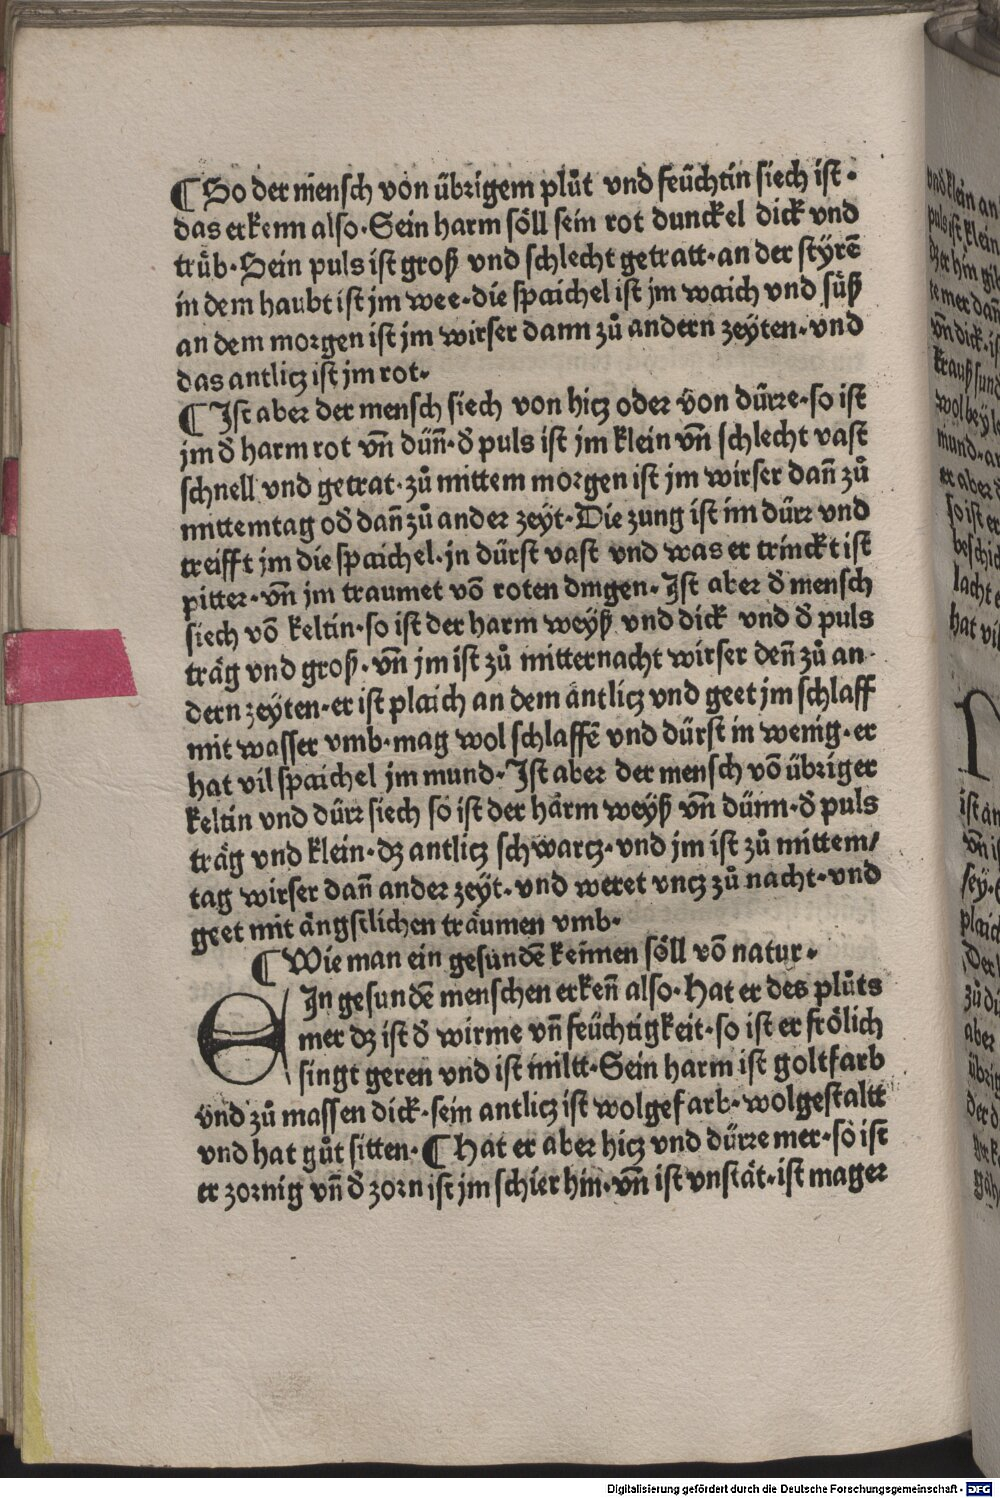 ¶ So der mensch von übrigem plůt vnd feüchtin siech ist·
das erkenn also· Sein harm söll sein rot dunckel dick vnd
trüb· Sein puls ist groß vnd schlecht getratt· an der styrē
in dem haubt ist jm wee· die spaichel ist jm waich vnd süß
an dem morgen ist jm wirser dann zů andern zeyten· vnd
das antlicz ist jm rot·
¶ Ist aber der mensch siech von hicz oder von dürre· so ist
jm d̄ harm rot vn̄ dün̄· d̄ puls ist jm klein vn̄ schlecht vast
schnell vnd getrat· zů mittem morgen ist jm wirser dan̄ zů
mittemtag od̄ dan̄ zů ander zeÿt· Die zung ist im dürr vnd
treifft jm die spaichel· jn dürst vast vnd was er trinckt ist
pitter· vn̄ jm traumet vō roten dingen· Ist aber d̄ mensch
siech vō keltin· so ist der harm weyß vnd dick vnd d̄ puls
träg vnd groß· vn̄ jm ist zů mitternacht wirser den̄ zů an
dern zeÿten· er ist plaich an dem äntlicz vnd geet jm schlaff
mit wasser vmb· mag wol schlaffē vnd dürst in wenig· er
hat vil spaichel jm mund· Ist aber der mensch vō übriger
keltin vnd dürr siech so ist der harm weyß vn̄ dünn· d̄ puls
träg vnd klein· dz antlicz schwarcz· vnd jm ist zů mittem/
tag wirser dan̄ ander zeÿt· vnd weret vncz zů nacht· vnd
geet mit ängstlichen träumen vmb·
¶ Wie man ein gesundē kennen söll vō natur·
EIn gesundē menschen erken̄ also· Hat er des plůts
mer dz ist d̄ wirme vn̄ feüchtigkeit· so ist er frölich
singt geren vnd ist miltt· Sein harm ist goltfarb
vnd zů massen dick· sein antlicz ist wolgefarb· wolgestaltt
vnd hat gůt sitten· ¶ Hat er aber hicz vnd dürre mer· so ist
er zornig vn̄ d̄ zorn ist jm schier hin· vn̄ ist vnstät· ist mager
vnd klein an
puls ist klein
dz er hin
te mer dan̄
vn̄ dick· is
krauß
wol bey
mund·
er aber
so ist er
beschi
lacht e
hat vil
ist an
vn̄
sey·
plaic
Der
zů
aber
übrig
der d
Digitalisierung gefördert durch die Deutsche Forschungsgemeinschaft - DFG